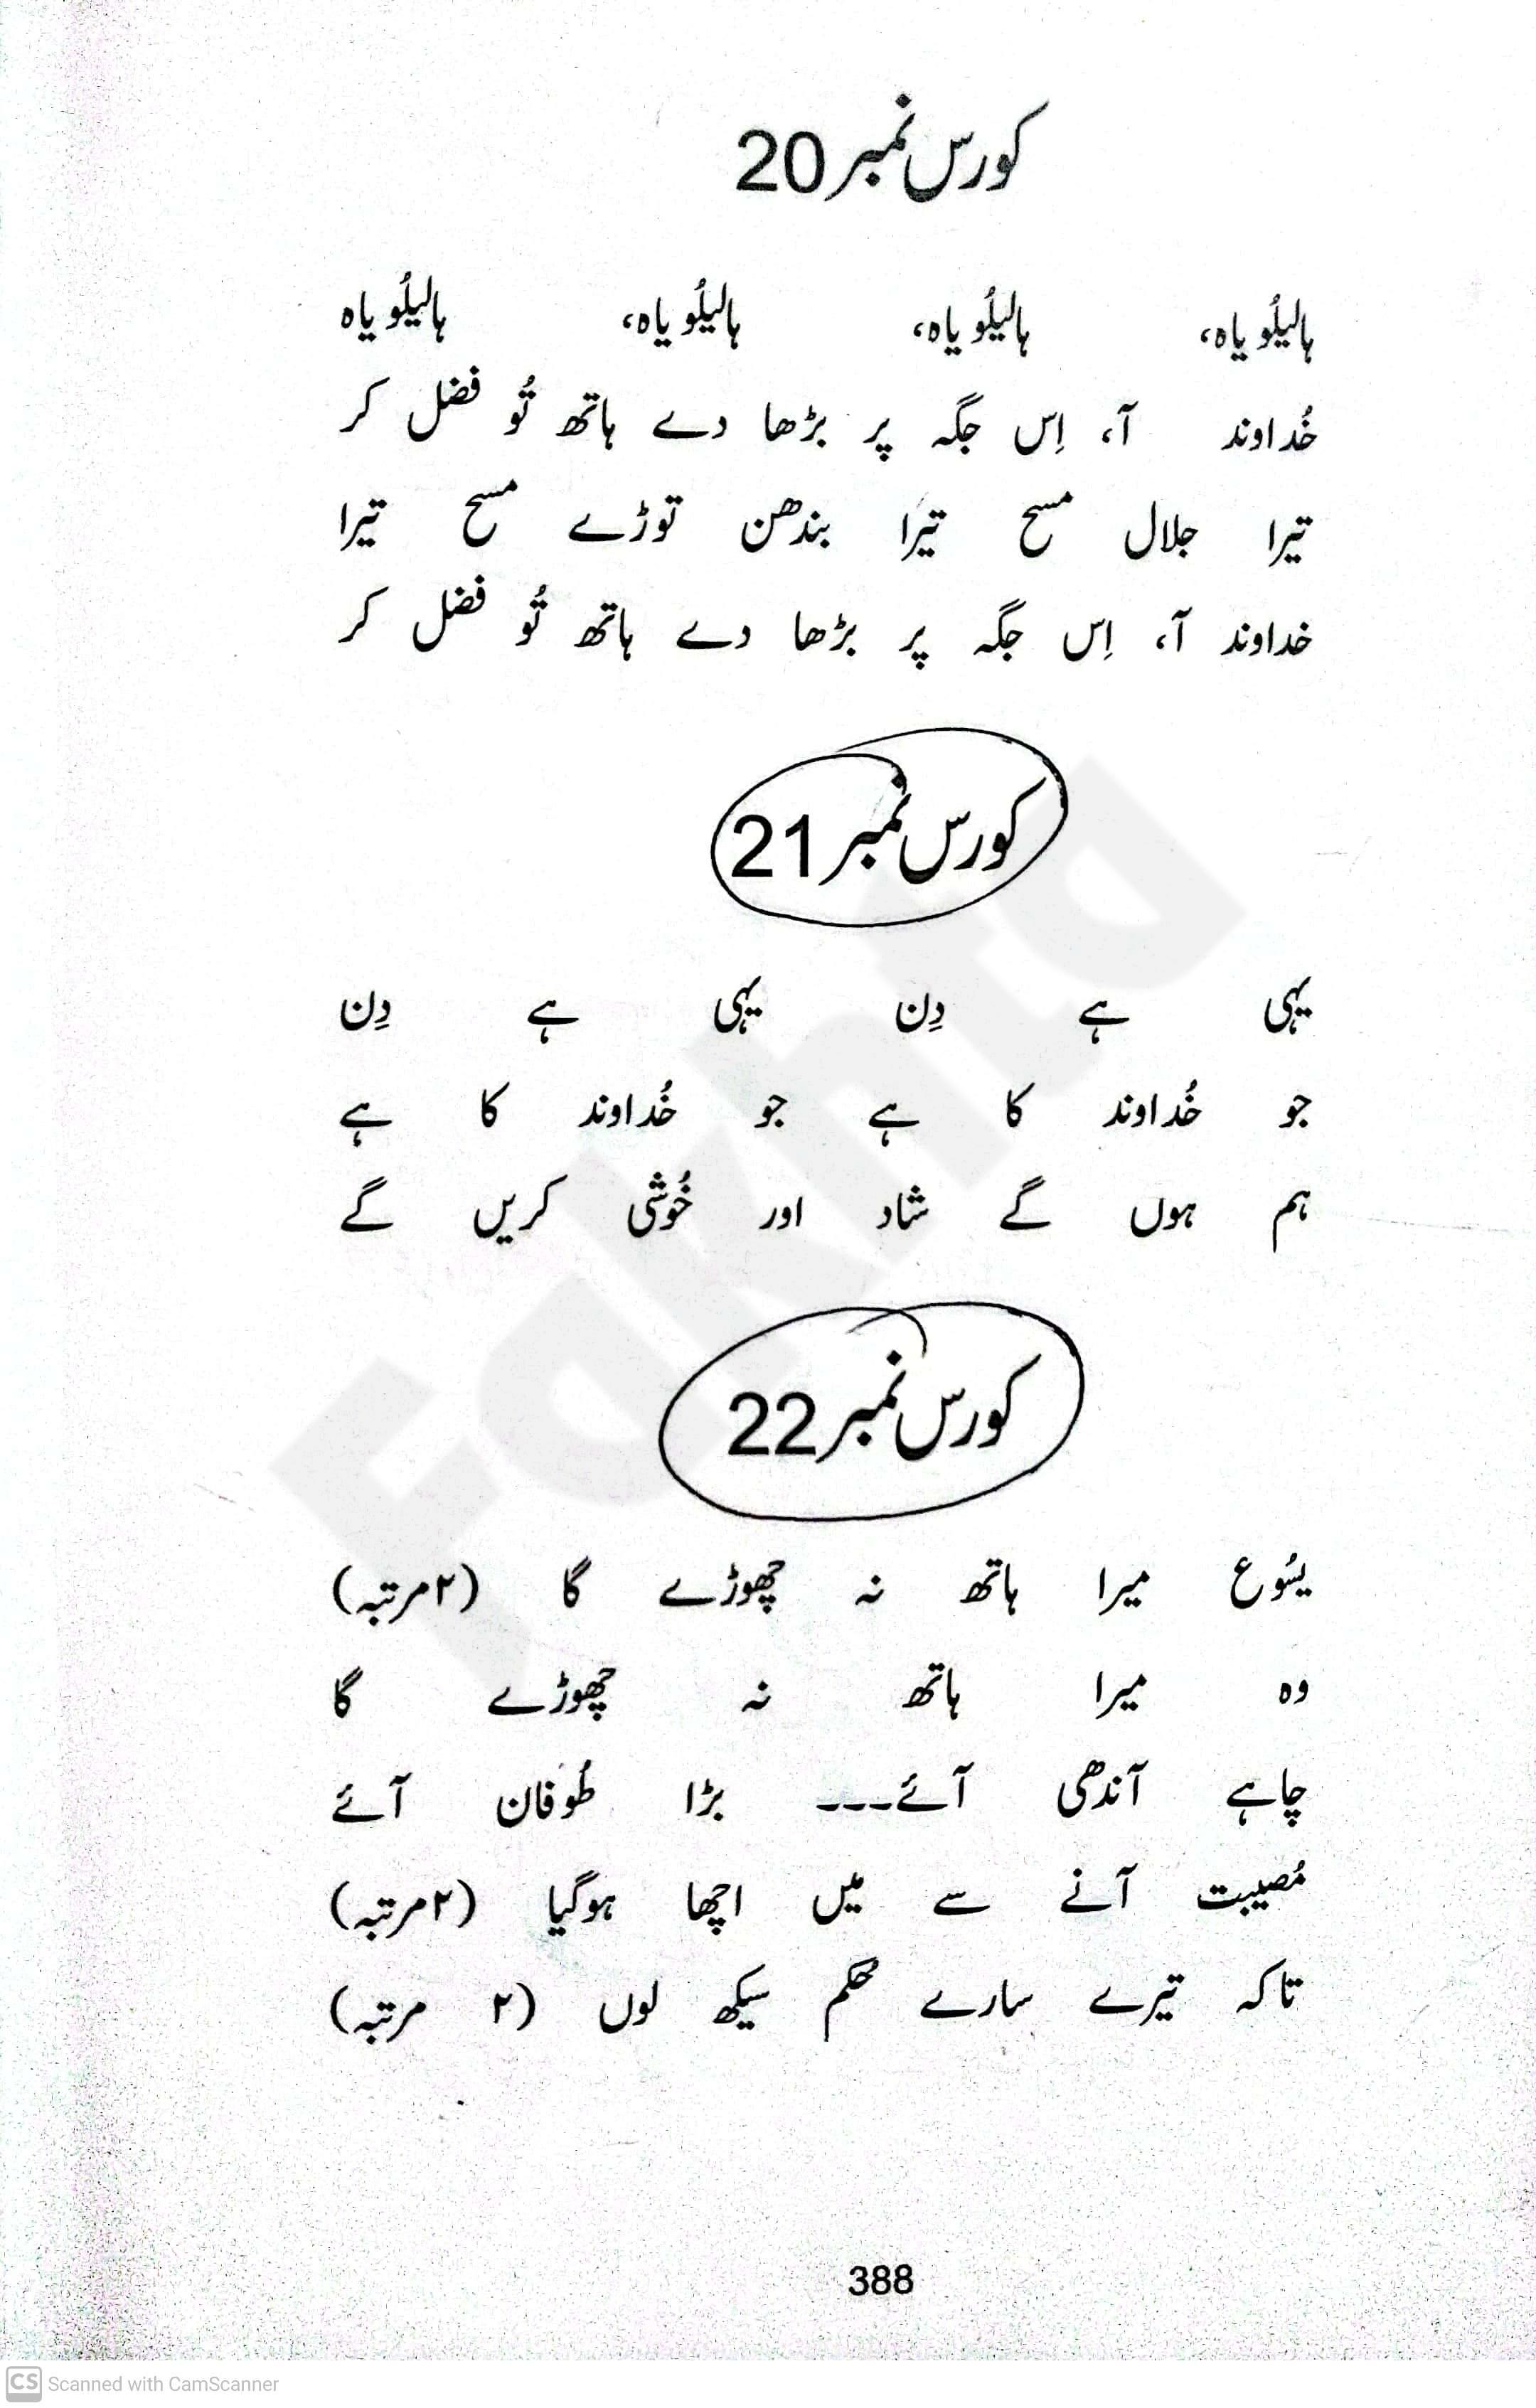 کورس نمبر 20
ہالیلُویاہ، ہالیلُویاہ، ہالیلُویاہ، ہالیلُویاہ
خُداوند آ، اِس جگہ پر بڑھا دے ہاتھ تُو فضل کر
تیرا جلال مسح تیرا بندھن توڑے مسح تیرا
خداوند آ، اِس جگہ پر بڑھا دے ہاتھ تُو فضل کر
کورس نمبر 21
یہی ہے دِن یہی ہے دِن
جو خُداوند کا ہے جو خُداوند کا ہے
ہم ہوں گے شاد اور خُوشی کریں گے
کورس نمبر 22
یسُوع میرا ہاتھ نہ چھوڑے گا (۲مرتبہ)
وہ میرا ہاتھ نہ چھوڑے گا
چاہے آندھی آئے۔۔۔ بڑا طُوفان آئے
مُصیبت آنے سے میں اچھا ہوگیا (۲مرتبہ)
تاکہ تیرے سارے حکم سیکھ لوں (۲ مرتبہ)
388
Fakhta
CS Scanned with CamScanner